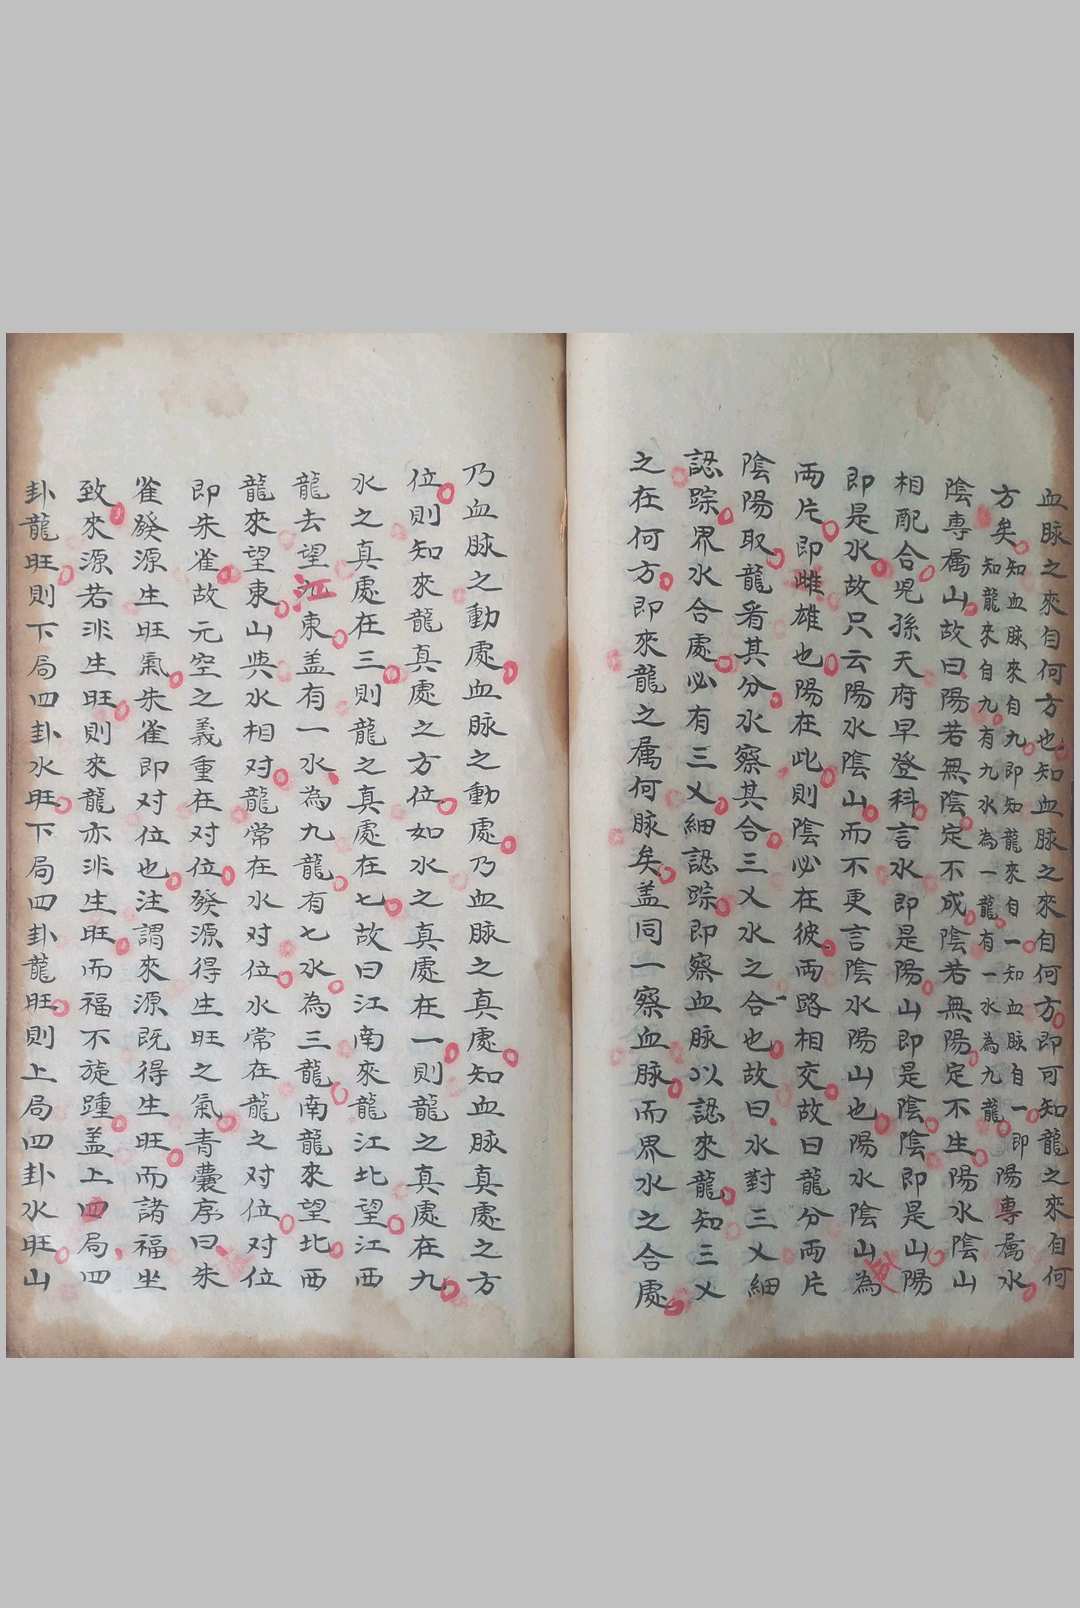 血脉之來自何方也知血脉之來自何方即可知龍之來自何
方矣
知血脉來自九即知龍來自一知血脉自一即
知龍來自九有九水為一龍有一水為九龍
陽專属水
陰專属山故曰陽若無陰定不成陰若無陽定不生陽水陰山
相配合児孫天府早登科言水即是陽山即是陰陰即是山陽
即是水故只云陽水陰山而不更言陰水陽山也陽水陰山為
両片即雌雄也陽在此則陰必在彼両路相交故曰龍分両片
陰陽取龍看其分水察其合三乂水之合也故曰水對三乂細
認踪界水合處必有三乂細認踪即察血脉以認來龍知三乂
之在何方即來龍之属何脉矣盖同一察血脉而界水之合處
乃血脉之動處血脉之動處乃血脉之真處知血脉真處之方
位則知來龍真處之方位如水之真處在一則龍之真處在九
水之真處在三則龍之真處在七故曰江南來龍江北望江西
龍去望江東盖有一水為九龍有七水為三龍南龍來望北西
龍來望東山與水相对龍常在水对位水常在龍之对位对位
即朱雀故元空之義重在对位發源得生旺之氣青囊序曰朱
雀發源生旺氣朱雀即对位也注謂來源既得生旺而諸福坐
致來源若非生旺則來龍亦非生旺而福不旋踵盖上四局四
卦龍旺則下局四卦水旺下局四卦龍旺則上局四卦水旺山